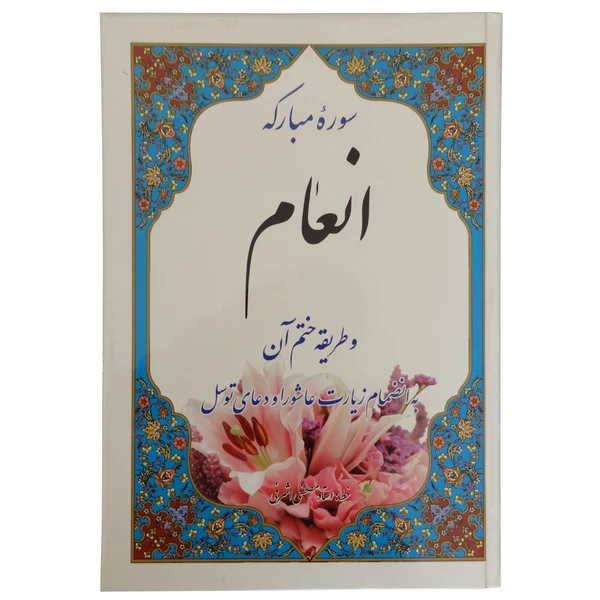 سورهٔ مبارکه
انعام
و طریقه ختم آن
به انضمام زیارت عاشورا و دعای توسل
خط: استاد مصطفی اشرفی